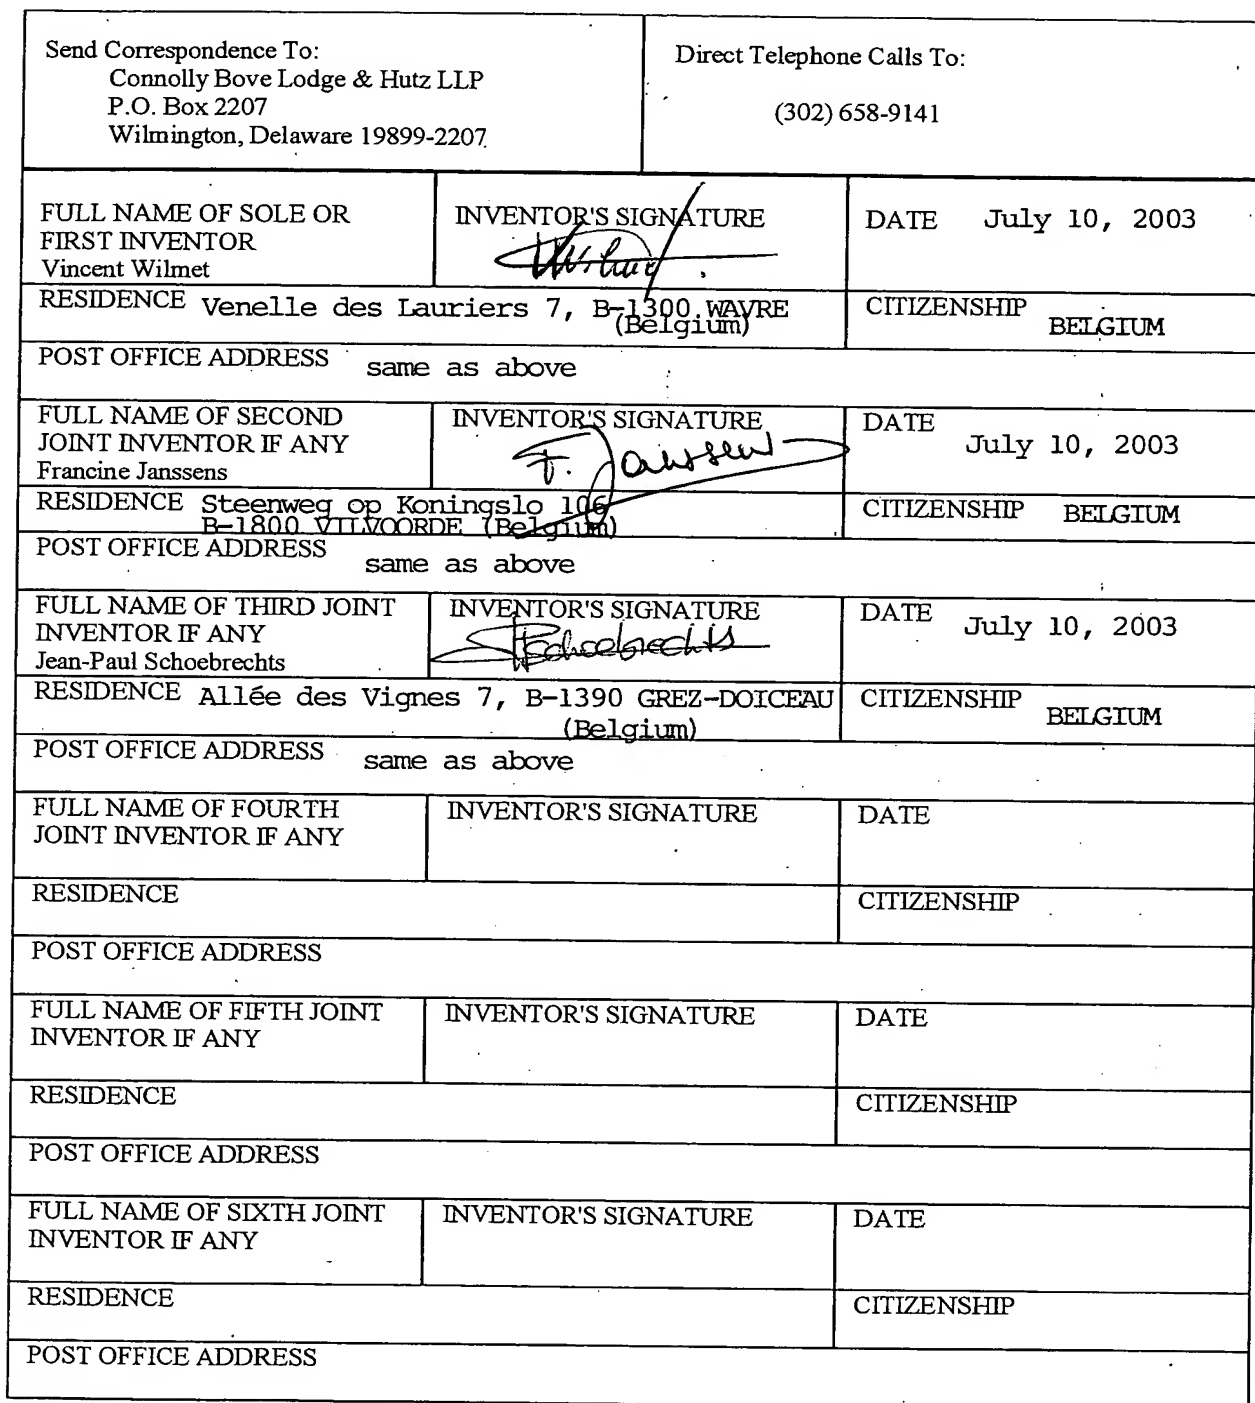 Send Correspondence To:
Connolly Bove Lodge & Hutz LLP
P.O. Box 2207
Wilmington, Delaware 19899-2207
Direct Telephone Calls To:
(302) 658-9141
FULL NAME OF SOLE OR
FIRST INVENTOR
Vincent Wilmet
INVENTOR'S SIGNATURE
Wilmet
DATE July 10, 2003
RESIDENCE Venelle des Lauriers 7, B-1300 WAVRE
(Belgium)
CITIZENSHIP
BELGIUM
POST OFFICE ADDRESS same as above
FULL NAME OF SECOND
JOINT INVENTOR IF ANY
Francine Janssens
INVENTOR'S SIGNATURE
F. Janssens
DATE
July 10, 2003
RESIDENCE Steenweg op Koningslo 106
B-1800 VILVOORDE (Belgium)
CITIZENSHIP BELGIUM
POST OFFICE ADDRESS
same as above
FULL NAME OF THIRD JOINT
INVENTOR IF ANY
Jean-Paul Schoebrechts
INVENTOR'S SIGNATURE
JPSchoebrechts
DATE July 10, 2003
RESIDENCE Allée des Vignes 7, B-1390 GREZ-DOICEAU
(Belgium)
CITIZENSHIP
BELGIUM
POST OFFICE ADDRESS same as above
FULL NAME OF FOURTH
JOINT INVENTOR IF ANY
INVENTOR'S SIGNATURE
DATE
RESIDENCE
CITIZENSHIP
POST OFFICE ADDRESS
FULL NAME OF FIFTH JOINT
INVENTOR IF ANY
INVENTOR'S SIGNATURE
DATE
RESIDENCE
CITIZENSHIP
POST OFFICE ADDRESS
FULL NAME OF SIXTH JOINT
INVENTOR IF ANY
INVENTOR'S SIGNATURE
DATE
RESIDENCE
CITIZENSHIP
POST OFFICE ADDRESS